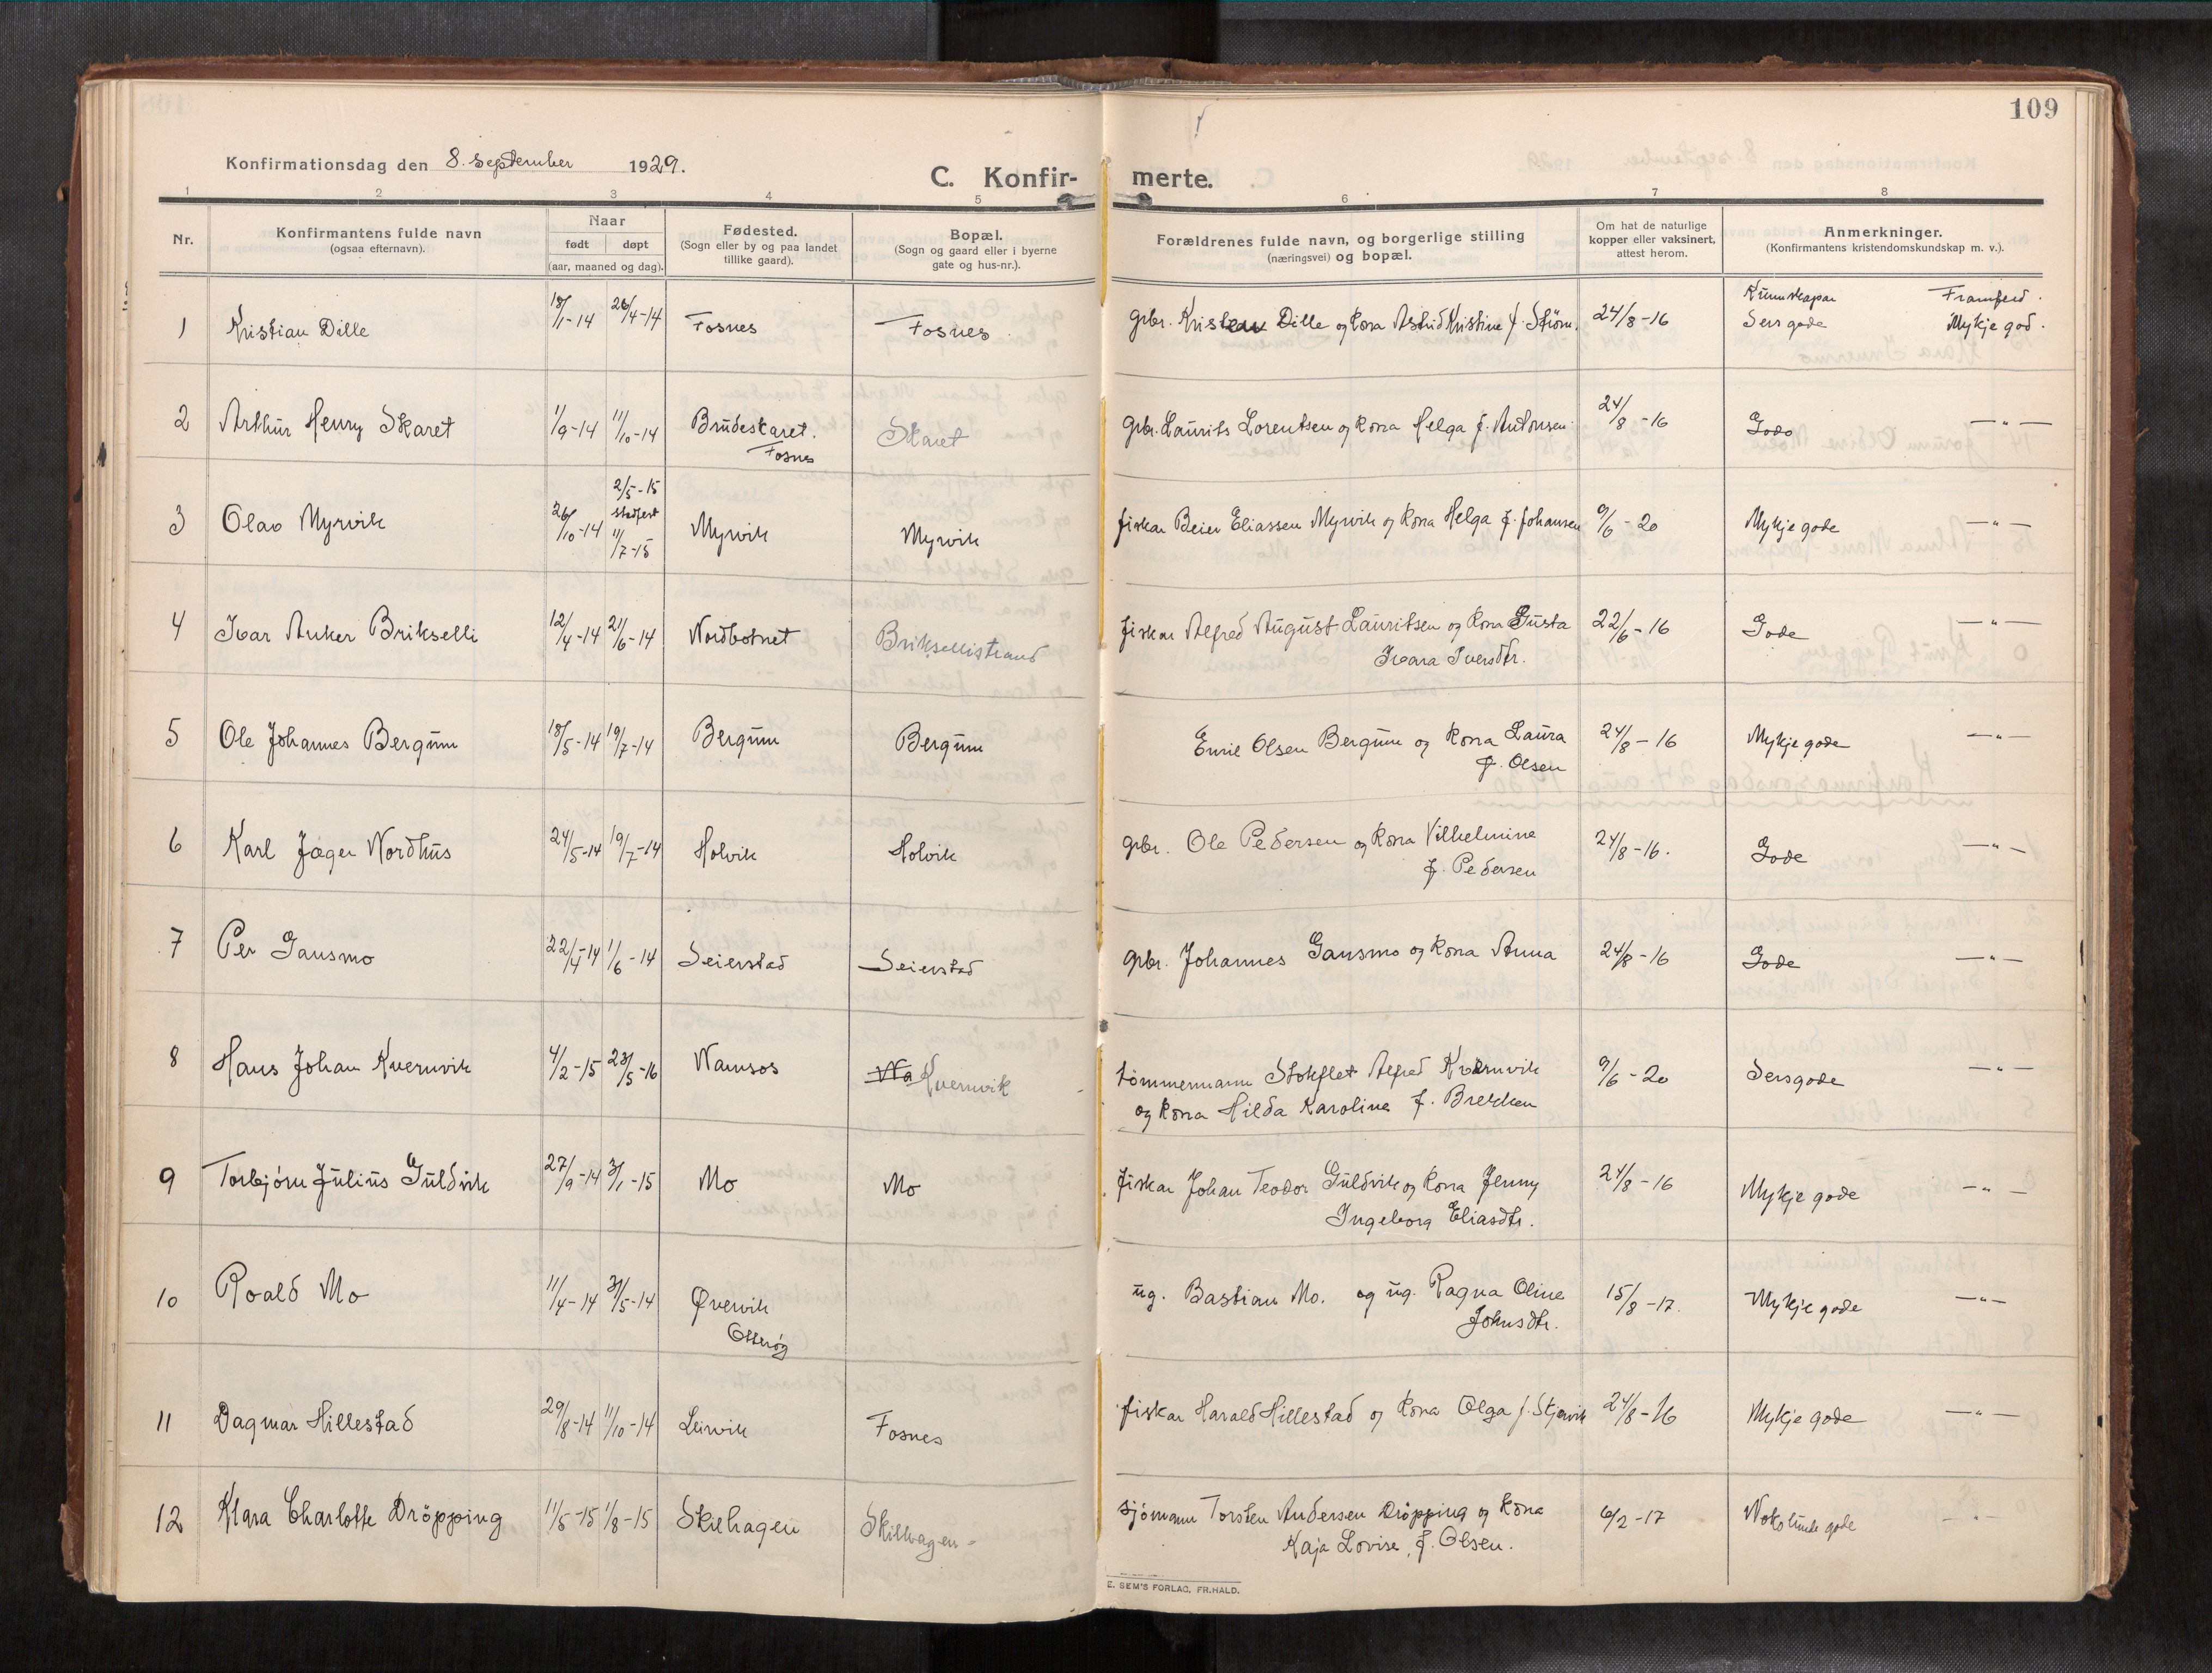 109
Konfirmationsdag den 8. september 1929.
C. Konfir- merte.
1 2 3 4 5 6 7 8
Nr.
Konfirmantens fulde navn
(ogsaa efternavn).
Naar
født døpt
(aar, maaned og dag).
Fødested.
(Sogn eller by og paa landet
tillike gaard).
Bopæl.
(Sogn og gaard eller i byerne
gate og hus-nr.).
Forældrenes fulde navn, og borgerlige stilling
(næringsvei) og bopæl.
Om hat de naturlige
kopper eller vaksinert,
attest herom.
Anmerkninger.
(Konfirmantens kristendomskundskap m. v.).
Kunnskapar Framferd.
1 Kristian Dille 18/1-14 26/4-14 Fosnes Fosnes gbr. Kristen Dille og kona Astrid Kristine f. Strøm. 24/8-16 Sers gode Mykje god.
2 Arthur Henry Skaret 1/9-14 11/10-14 Brudeskaret. Skaret gbr. Laurits Lorentsen og kona Helga f. Antonsen 24/8-16 Gode —"—
Fosnes
2/5-15
3 Olav Myrvik 26/10-14 stadfest Myrvik Myrvik fiskar Beier Eliassen Myrvik og kona Helga f. Johansen 9/6-20 Mykje gode —"—
11/7-15
4 Ivar Anker Brikselli 12/4-14 21/6-14 Nordbotnet Briksellistrand fiskar Alfred August Lauritsen og kona Gusta 22/6-16 Gode —"—
Ivara Iversdtr.
5 Ole Johannes Bergum 18/5-14 19/7-14 Bergum Bergum Emil Olsen Bergum og kona Laura 24/8-16 Mykje gode —"—
f. Olsen
6 Karl Jæger Nordhus 24/5-14 19/7-14 Holvik Holvik gbr. Ole Pedersen og kona Vilhelmine 24/8-16. Gode —"—
f. Pedersen
7 Per Gausmo 22/4-14 1/6-14 Seierstad Seierstad gbr. Johannes Gausmo og kona Anna 24/8-16 Gode —"—
8 Hans Johan Kvernvik 4/2-15 23/5-16 Namsos Na Kvernvik tømmermann Stokflet Alfred Kvernvik 9/6-20 Sersgode —"—
og kona Hilda Karoline f. Brekken
9 Torbjørn Julius Guldvik 27/9-14 3/1-15 Mo Mo fiskar Johan Teodor Guldvik og kona Jenny 24/8-16 Mykje gode —"—
Ingeborg Eliasdtr.
10 Roald Mo 11/4-14 31/5-14 Øvervik ug. Bastian Mo. og ug. Ragna Oline 15/8-17. Mykje gode —"—
Otterøy Johnsdtr.
11 Dagmar Hillestad 29/8-14 11/10-14 Leirvik Fosnes fiskar Harald Hillestad og kona Olga f. Skjervik 24/8-16 Mykje gode —"—
12 Klara Charlotte Dröpping 11/5-15 1/8-15 Skilhagen Skilhagen sjömann Torsten Andersen Dröpping og kona 6/2-17 Nokolunde gode —"—
Kaja Lovise, f. Olsen.
E. SEM'S FORLAG, FR.HALD.